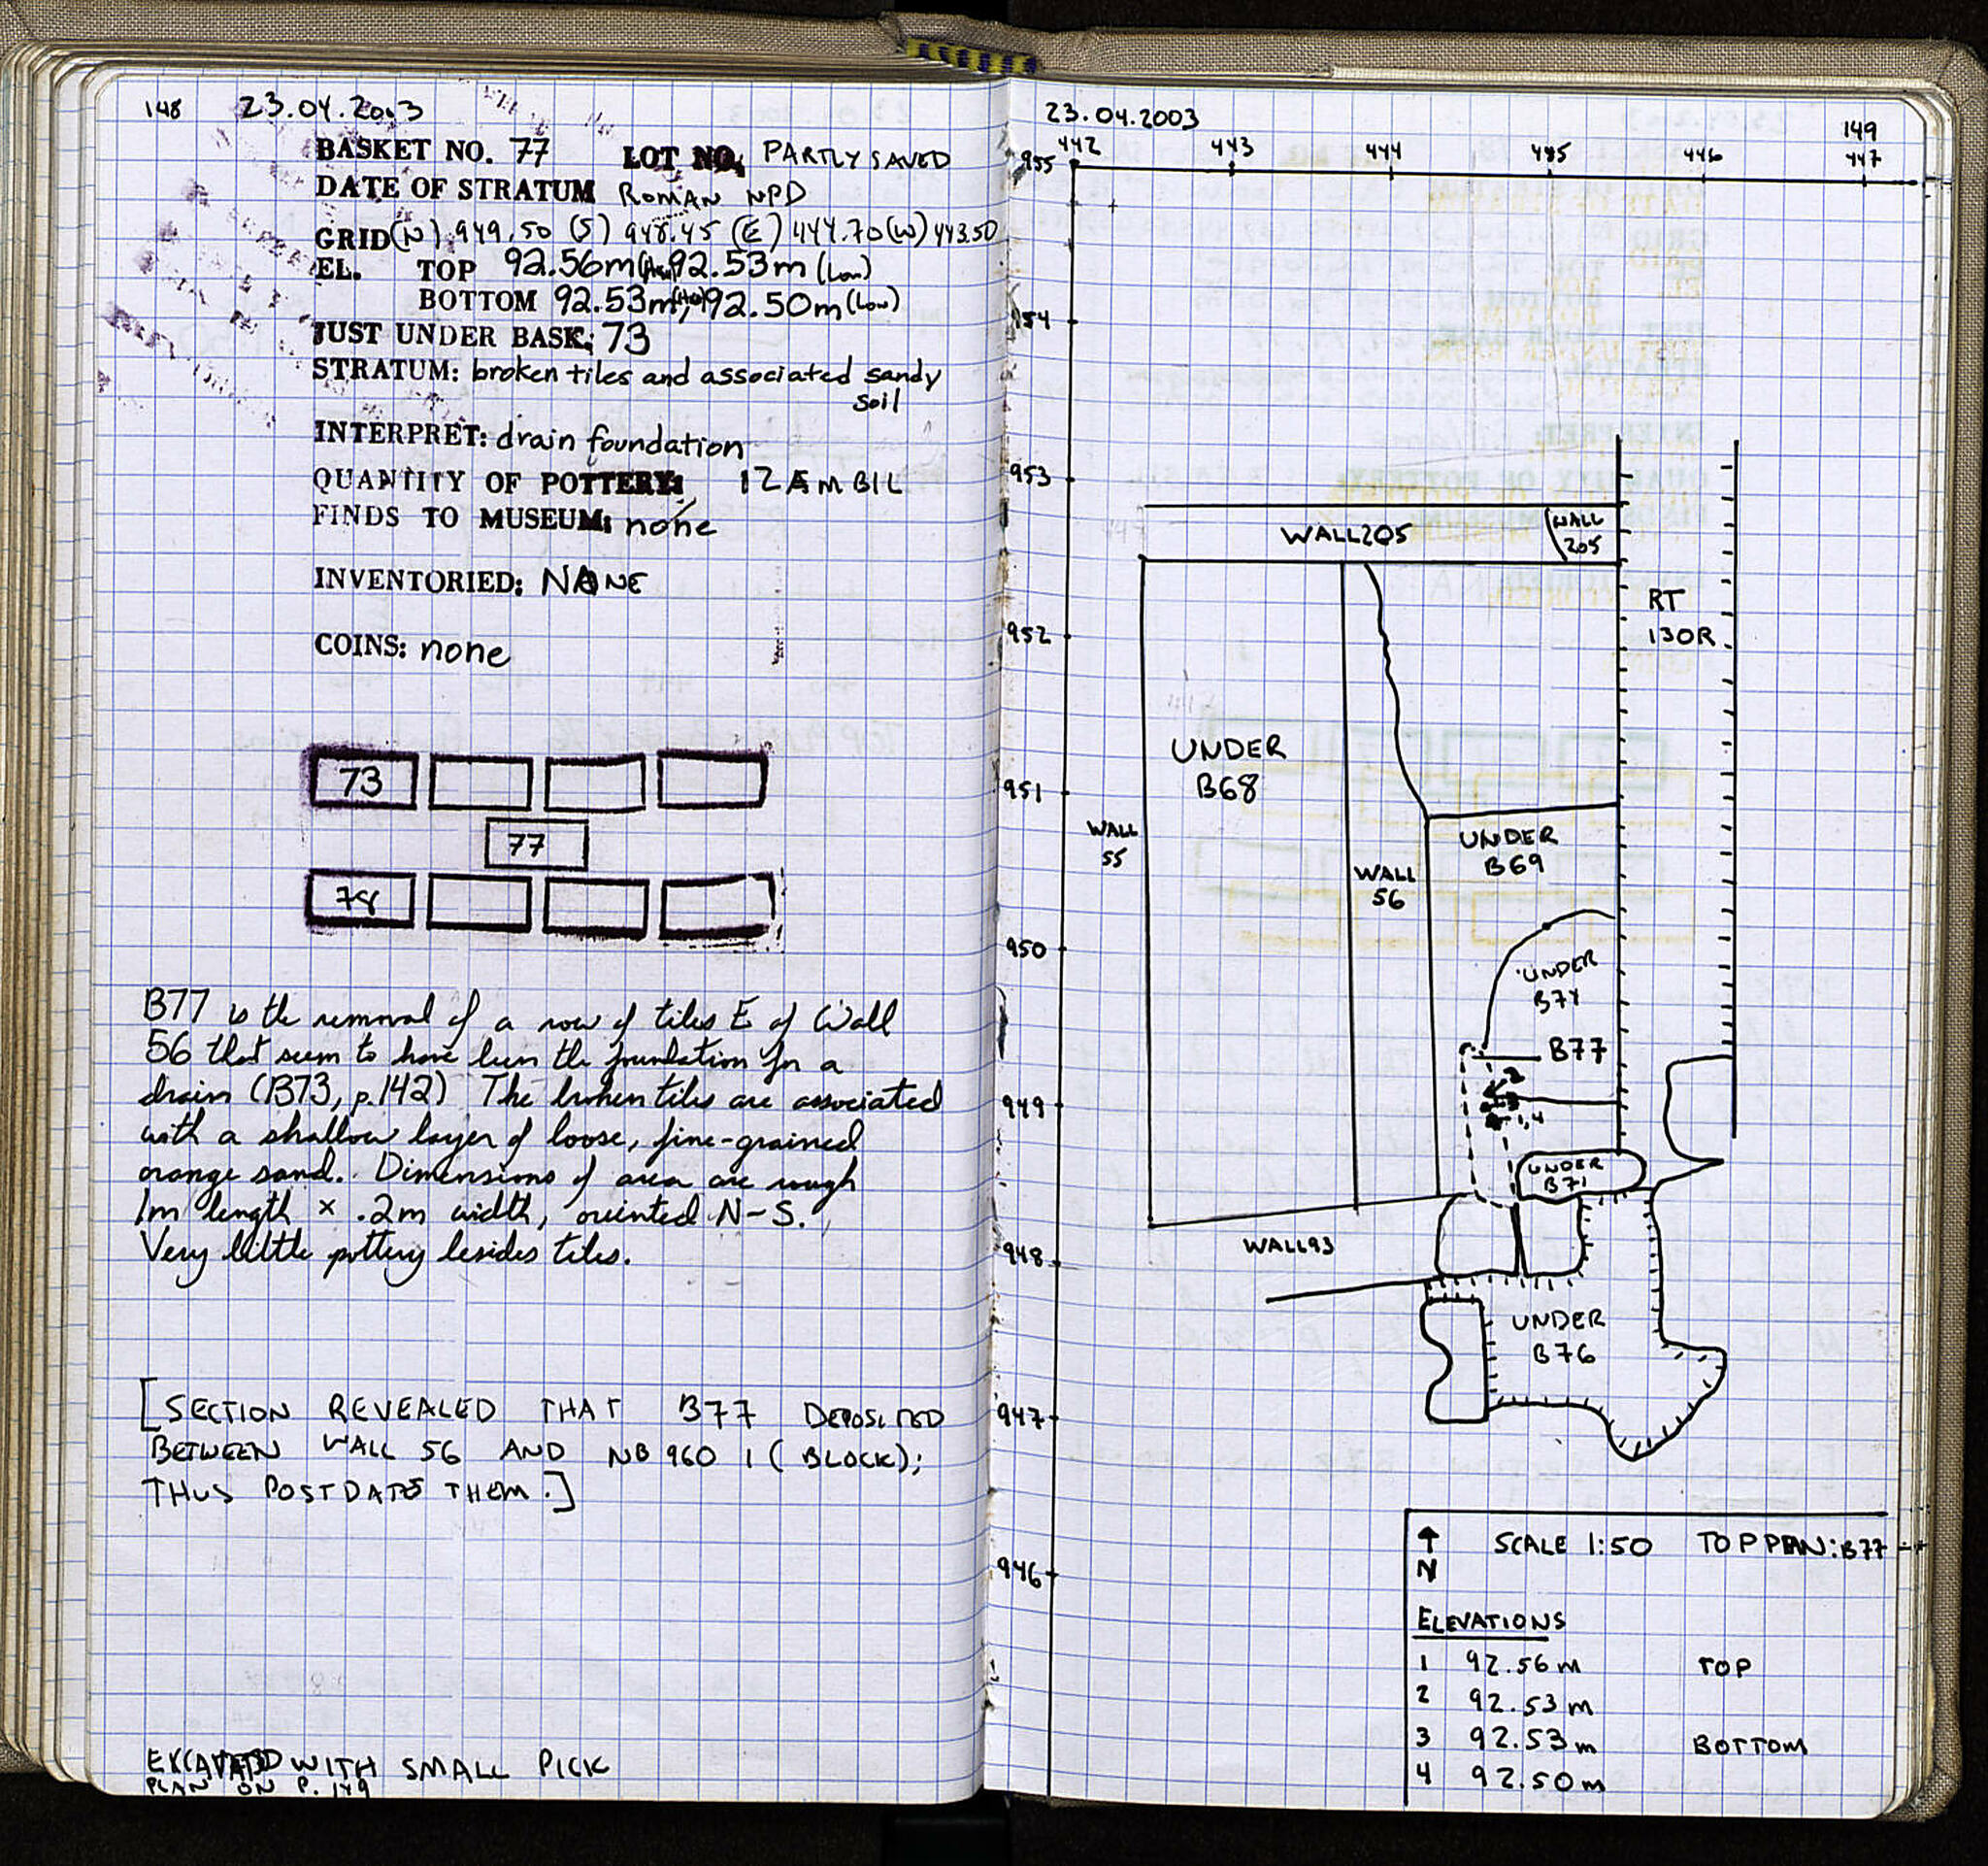 148 23.04.2003
BASKET NO. 77 LOT NO. PARTLY SAVED
DATE OF STRATUM ROMAN NPD
GRID (N) 949.50 (S) 948.45 (E) 444.70 (W) 443.50
EL. TOP 92.56m 92.53m (Low)
BOTTOM 92.53m 92.50m (Low)
JUST UNDER BASK: 73
STRATUM: broken tiles and associated sandy
soil
INTERPRET: drain foundation
QUANTITY OF POTTERY: 12 AMBIL
FINDS TO MUSEUM: none
INVENTORIED: NONE
COINS: none
73
77
78
B77 is the removal of a row of tiles E of Wall
56 that seem to have been the foundation for a
drain (B73, p.142) The broken tiles are associated
with a shallow layer of loose, fine-grained
orange sand. Dimensions of area are rough
1m length x .2m width, oriented N-S.
Very little pottery besides tiles.
[SECTION REVEALED THAT B77 DEPOSITED
BETWEEN WALL 56 AND NB 960 1 (BLOCK);
THUS POSTDATES THEM.]
EXCAVATED WITH SMALL PICK
PLAN ON P. 149
23.04.2003
149
442 443 444 445 446 447
955
954
953
WALL 205 WALL
205
RT
130R
952
UNDER
B68
951
WALL
55
UNDER
B69
WALL
56
950
UNDER
B74
B77
2
949
3
1,4
UNDER
B71
WALL 93
948
UNDER
B76
947
946
N
SCALE 1:50 TOP PLAN: B77
ELEVATIONS
1 92.56m TOP
2 92.53m
3 92.53m BOTTOM
4 92.50m